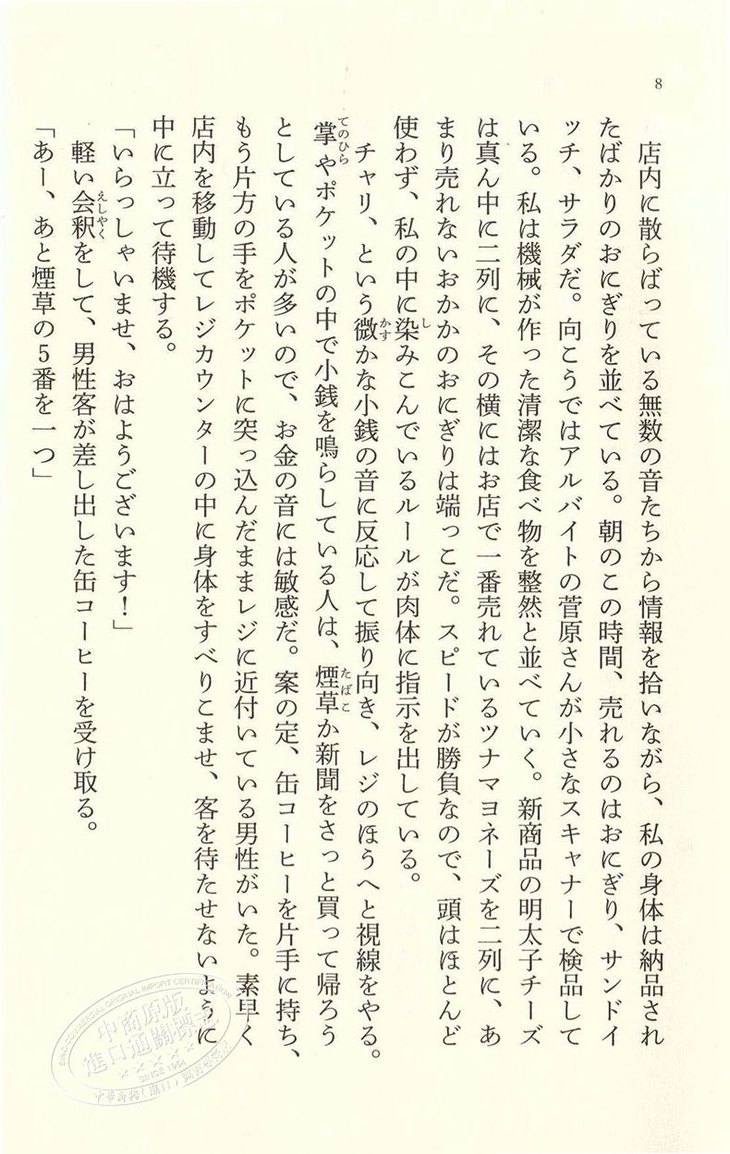 8
店内に散らばっている無数の音たちから情報を拾いながら、私の身体は納品され
たばかりのおにぎりを並べている。朝のこの時間、売れるのはおにぎり、サンドイ
ッチ、サラダだ。向こうではアルバイトの菅原さんが小さなスキャナーで検品して
いる。私は機械が作った清潔な食べ物を整然と並べていく。新商品の明太子チーズ
は真ん中に二列に、その横にはお店で一番売れているツナマヨネーズを二列に、あ
まり売れないおかかのおにぎりは端っこだ。スピードが勝負なので、頭はほとんど
使わず、私の中に染みこんでいるルールが肉体に指示を出している。
チャリ、という微かな小銭の音に反応して振り向き、レジのほうへと視線をやる。
掌やポケットの中で小銭を鳴らしている人は、煙草か新聞をさっと買って帰ろう
としている人が多いので、お金の音には敏感だ。案の定、缶コーヒーを片手に持ち、
もう片方の手をポケットに突っ込んだままレジに近付いている男性がいた。素早く
店内を移動してレジカウンターの中に身体をすべりこませ、客を待たせないように
中に立って待機する。
「いらっしゃいませ、おはようございます！」
軽い会釈をして、男性客が差し出した缶コーヒーを受け取る。
「あー、あと煙草の5番を一つ」
中商原版
進口通關標志